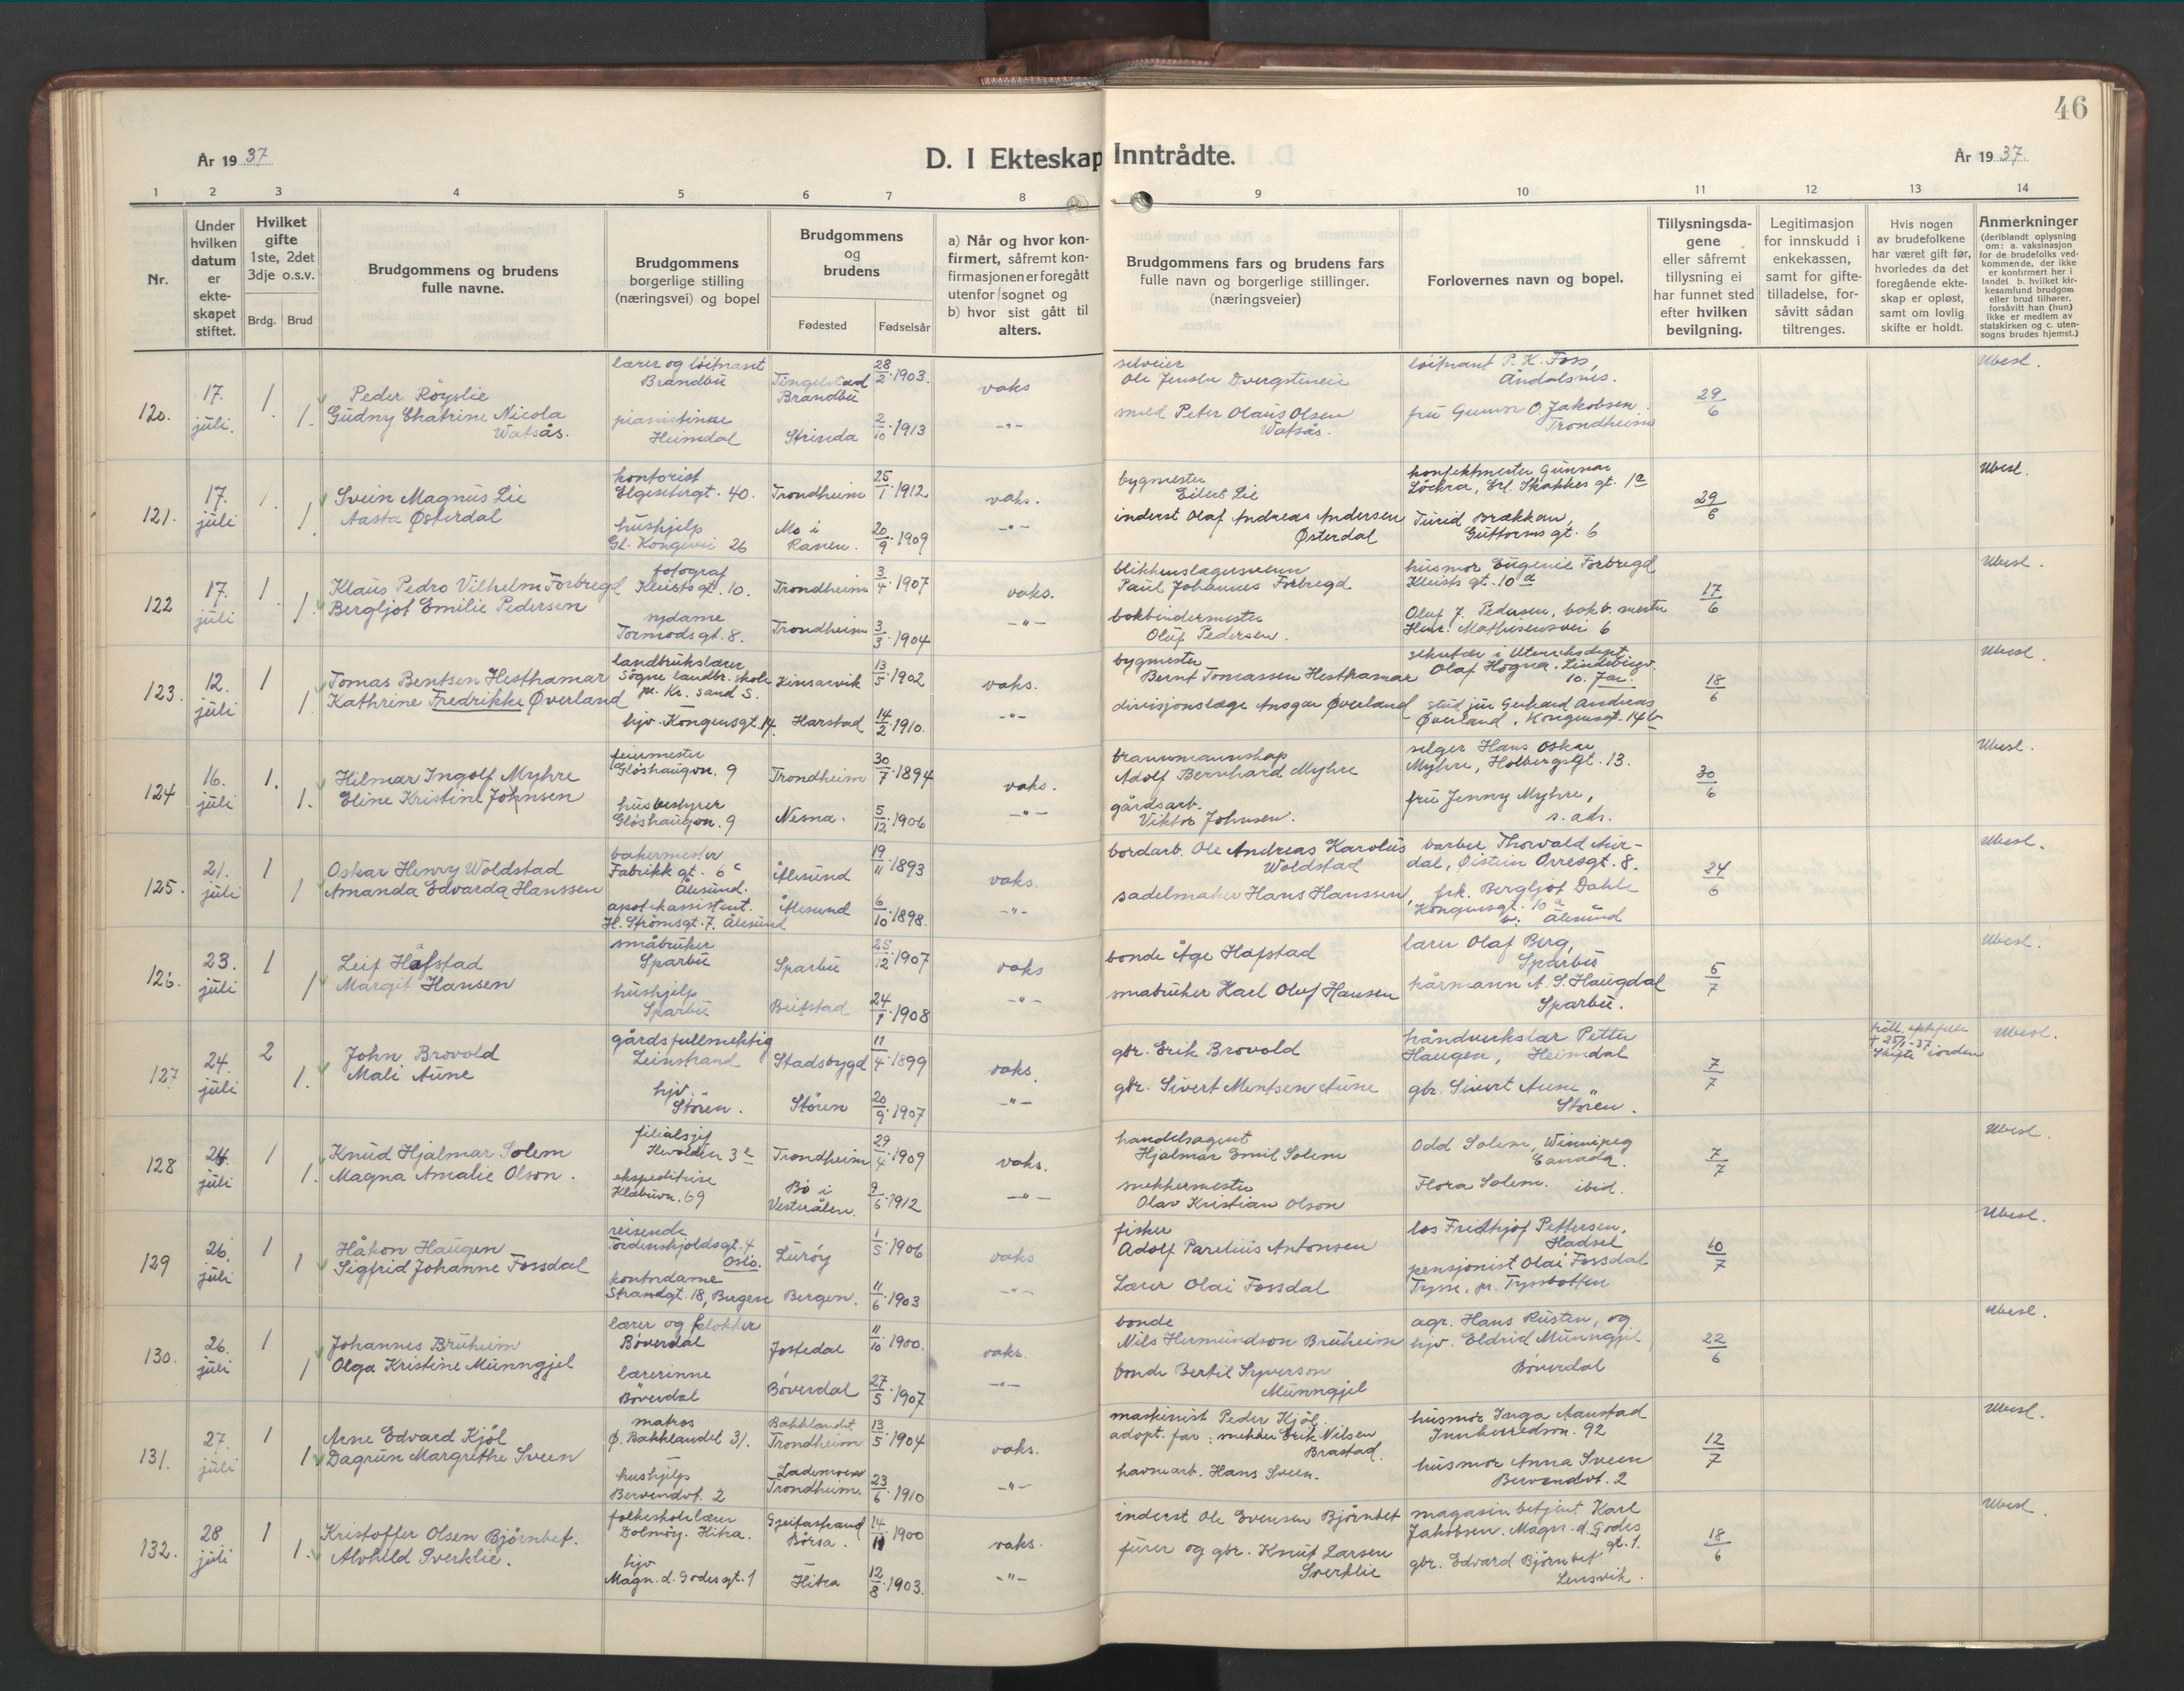 46
År 1937
D. I Ekteskap Inntrådte.
År 1937
1 2 3 4 5 6 7 8 9 10 11 12 13 14
Nr.
Under hvilken datum er ekte-skapet stiftet.
Hvilket gifte 1ste, 2det 3dje o.s.v.
Brdg. Brud
Brudgommens og brudens fulle navne.
Brudgommens borgerlige stilling (næringsvei) og bopel
Brudgommens og brudens
Fødested Fødselsår
a) Når og hvor kon-firmert, såfremt kon-firmasjonen er foregått utenfor sognet og b) hvor sist gått til alters.
Brudgommens fars og brudens fars fulle navn og borgerlige stillinger. (næringsveier)
Forlovernes navn og bopel.
Tillysningsda-gene eller såfremt tillysning ei har funnet sted efter hvilken bevilgning.
Legitimasjon for innskudd i enkekassen, samt for gifte-tilladelse, for-såvitt sådan tiltrenges.
Hvis nogen av brudefolkene har været gift før, hvorledes da det foregående ekte-skap er opløst, samt om lovlig skifte er holdt.
Anmerkninger (deriblandt oplysning om: a. vaksinasjon for de brudefolks ved-kommende, der ikke er konfirmert her i landet b. hvilket kir-kesamfund brudgom eller brud tilhører, forsåvitt han (hun) ikke er medlem av statskirken og c. uten-sogns brudes hjemst.)
120. 17. juli. 1 Peder Røyslie lærer og løitnant Brandbu Tingelstad Brandbu 28/2 1903. vaks selveier Ole Jensen Dvergsteneie løitnant P. K. Foss, Åndalsnes. 29/6 Ubesl.
1 Gudny Chatrine Nicola Watsås. pianistinne Heimdal Strinda 2/10 1913 -"- smed Peter Olaus Olsen Watsås. fru Gunvor O. Jakobsen Trondheim
121. 17. juli 1 Svein Magnus Lie kontorist Elgesetergt. 40. Trondheim 25/1 1912 vaks. bygmester Eilert Lie Gunnar Løckra, Erl. Skakkes gt. 1a 29/6 Ubesl.
1 Aasta Østerdal hushjelp Gl. Kongevei 26 Mo i Ranen. 20/9 1909 -"- inderst Olaf Andreas Andersen Østerdal Turid Brækkan, Guttorms gt. 6
122 17. juli 1 Klaus Pedro Vilhelm Forbregd fotograf Kleists gt. 10. Trondheim 3/4 1907 vaks. blikkenslagersvenn Paul Johannes Forbregd husmor Eugenie Forbregd Kleists gt. 10a 17/6 Ubesl.
1 Bergljot Emilie Pedersen sydame Tormods gt. 8. Trondheim 3/3 1904 -"- bokbindermester Oluf Pedersen. Oluf J. Pedersen, bokb. mester Henr. Mathisensvei 6
123. 12. juli 1 Tomas Bentsen Hesthamar landbrukslærer Søgne landbr. skole pr. Kr. sand S. Kinsarvik 13/5 1902 vaks. bygmester Bernt Tomassen Hesthamar sekretær i Utenriksdept. Olaf Hogna. 18/6 Ubesl.
1 Kathrine Fredrikke Øverland hjv. Kongensgt. 14. Harstad 14/2 1910. -"- divisjonslæge Ansgar Øverland stud. jur Gerhard Andreas Øverland, Kongensgt. 14b
124 16. juli 1. Hilmar Ingolf Myhre feiermester Gløshaugvn. 9 Trondheim 30/7 1894 vaks. brannmannskap Adolf Bernhard Myhre selger Hans Oskar Myhre, Holbergsgt. 13. 30/6 Ubesl.
1. Eline Kristine Johnsen husbestyrer Gløshaugvn. 9 Nesna. 5/12 1906 -"- gårdsarb. Viktor Johnsen. fru Jenny Myhre, s. adr.
125. 21. juli 1 Oskar Henry Woldstad bakermester Fabrikkgt. 6c Ålesund. Ålesund 19/11 1893 vaks. bordarb. Ole Andreas Karolus Woldstad barber Thorvald Aur-dal, Øistein Orresgt. 8. 24/6 Ubesl.
1 Amanda Edvarda Hanssen apotekassistent. H. Strømsgt. 7. Ålesund Ålesund 6/10 1898. -"- sadelmaker Hans Hanssen, frk. Bergljot Dahle Kongensgt. 10a Ålesund
126. 23. juli 1 Leif Hafstad småbruker Sparbu Sparbu 25/12 1907 vaks bonde Åge Hafstad lærer Olaf Berg, Sparbu 5/7 Ubesl.
1 Margit Hansen hushjelp Sparbu Beitstad 24/1 1908 -"- småbruker Karl Oluf Hansen A. S. Haugdal Sparbu.
127 24. juli 2 John Brovold gårdsfullmektig Leinstrand Stadsbygd 11/4 1899 vaks. gbr. Erik Brovold håndverkslær Petter Haugen, Heimdal 7/7 † 25/1-37 Skifte i orden Ubesl.
1. Mali Aune hjv. Støren. Støren 20/9 1907 -"- gbr. Sivert Mentsen Aune gbr. Sivert Aune Støren.
128 24. juli 1 Knud Hjalmar Solem filialsjef Trondheim 29/4 1909 vaks. handelsagent Hjalmar Emil Solem Odd Solem, Winnipeg Canada. 7/7 Ubesl.
1. Magna Amalie Olson. ekspeditrise Klæbuvn. 69 Bø i Vesterålen. 9/6 1912 -"- snekkermester Olav Kristian Olson Flora Solem. ibid.
129 26. juli 1 Håkon Haugen reisende Tordenskjoldsgt. 4 Oslo. Lurøy 1/5 1906 vaks fisker Adolf Parelius Antonsen los Fridthjof Pettersen, Hadsel 10/7 Ubesl.
1 Sigfrid Johanne Fossdal kontordame Strandgt. 18, Bergen Bergen. 11/6 1903 -"- Lærer Olai Fossdal pensjonist Olai Fossdal Tysse, pr. Tyssbotten
130. 26. juli 1 Johannes Bruheim lærer og klokker Bøverdal Jostedal 11/10 1900. vaks. bonde Nils Hermundson Bruheim agr. Hans Rusten, og 22/6 Ubesl.
1 Olga Kristine Munngjel lærerinne Bøverdal Bøverdal 27/5 1907 -"- bonde Bertil Syverson Munngjel hjv. Eldrid Munngjel, Bøverdal
131. 27. juli 1 Arne Edvard Kjøl matros Ø. Bakklandet 31. Bakklandet Trondheim 13/5 1904 vaks. maskinist Peder Kjøl. adopt. far: snekker Erik Nilsen Brastad. husmor Inga Aanstad Innherredsvn. 92 12/7 Ubesl.
1 Dagrun Margrethe Sveen hushjelp Bervendvt. 2 Lademoen Trondheim. 23/6 1910 -"- havnearb. Hans Sveen. husmor Anna Sveen Bervendvt. 2
132. 28 juli 1 Kristoffer Olsen Bjørnbet. folkeskolelærer Dolmøy. Hitra. Børsa. 14/11 1900 vaks. inderst Ole Evensen Bjørnbet magasinbetjent Karl Jakobsen. Magn. d. Godes gt. 1. 18/6 Ubesl.
1. Alvhild Sverklie. hjv Magn. d. Godes gt. 1 Hitra 12/8 1903. -"- furer og gbr. Knut Larsen Sverklie gbr. Edvard Bjørnbet Lensvik.